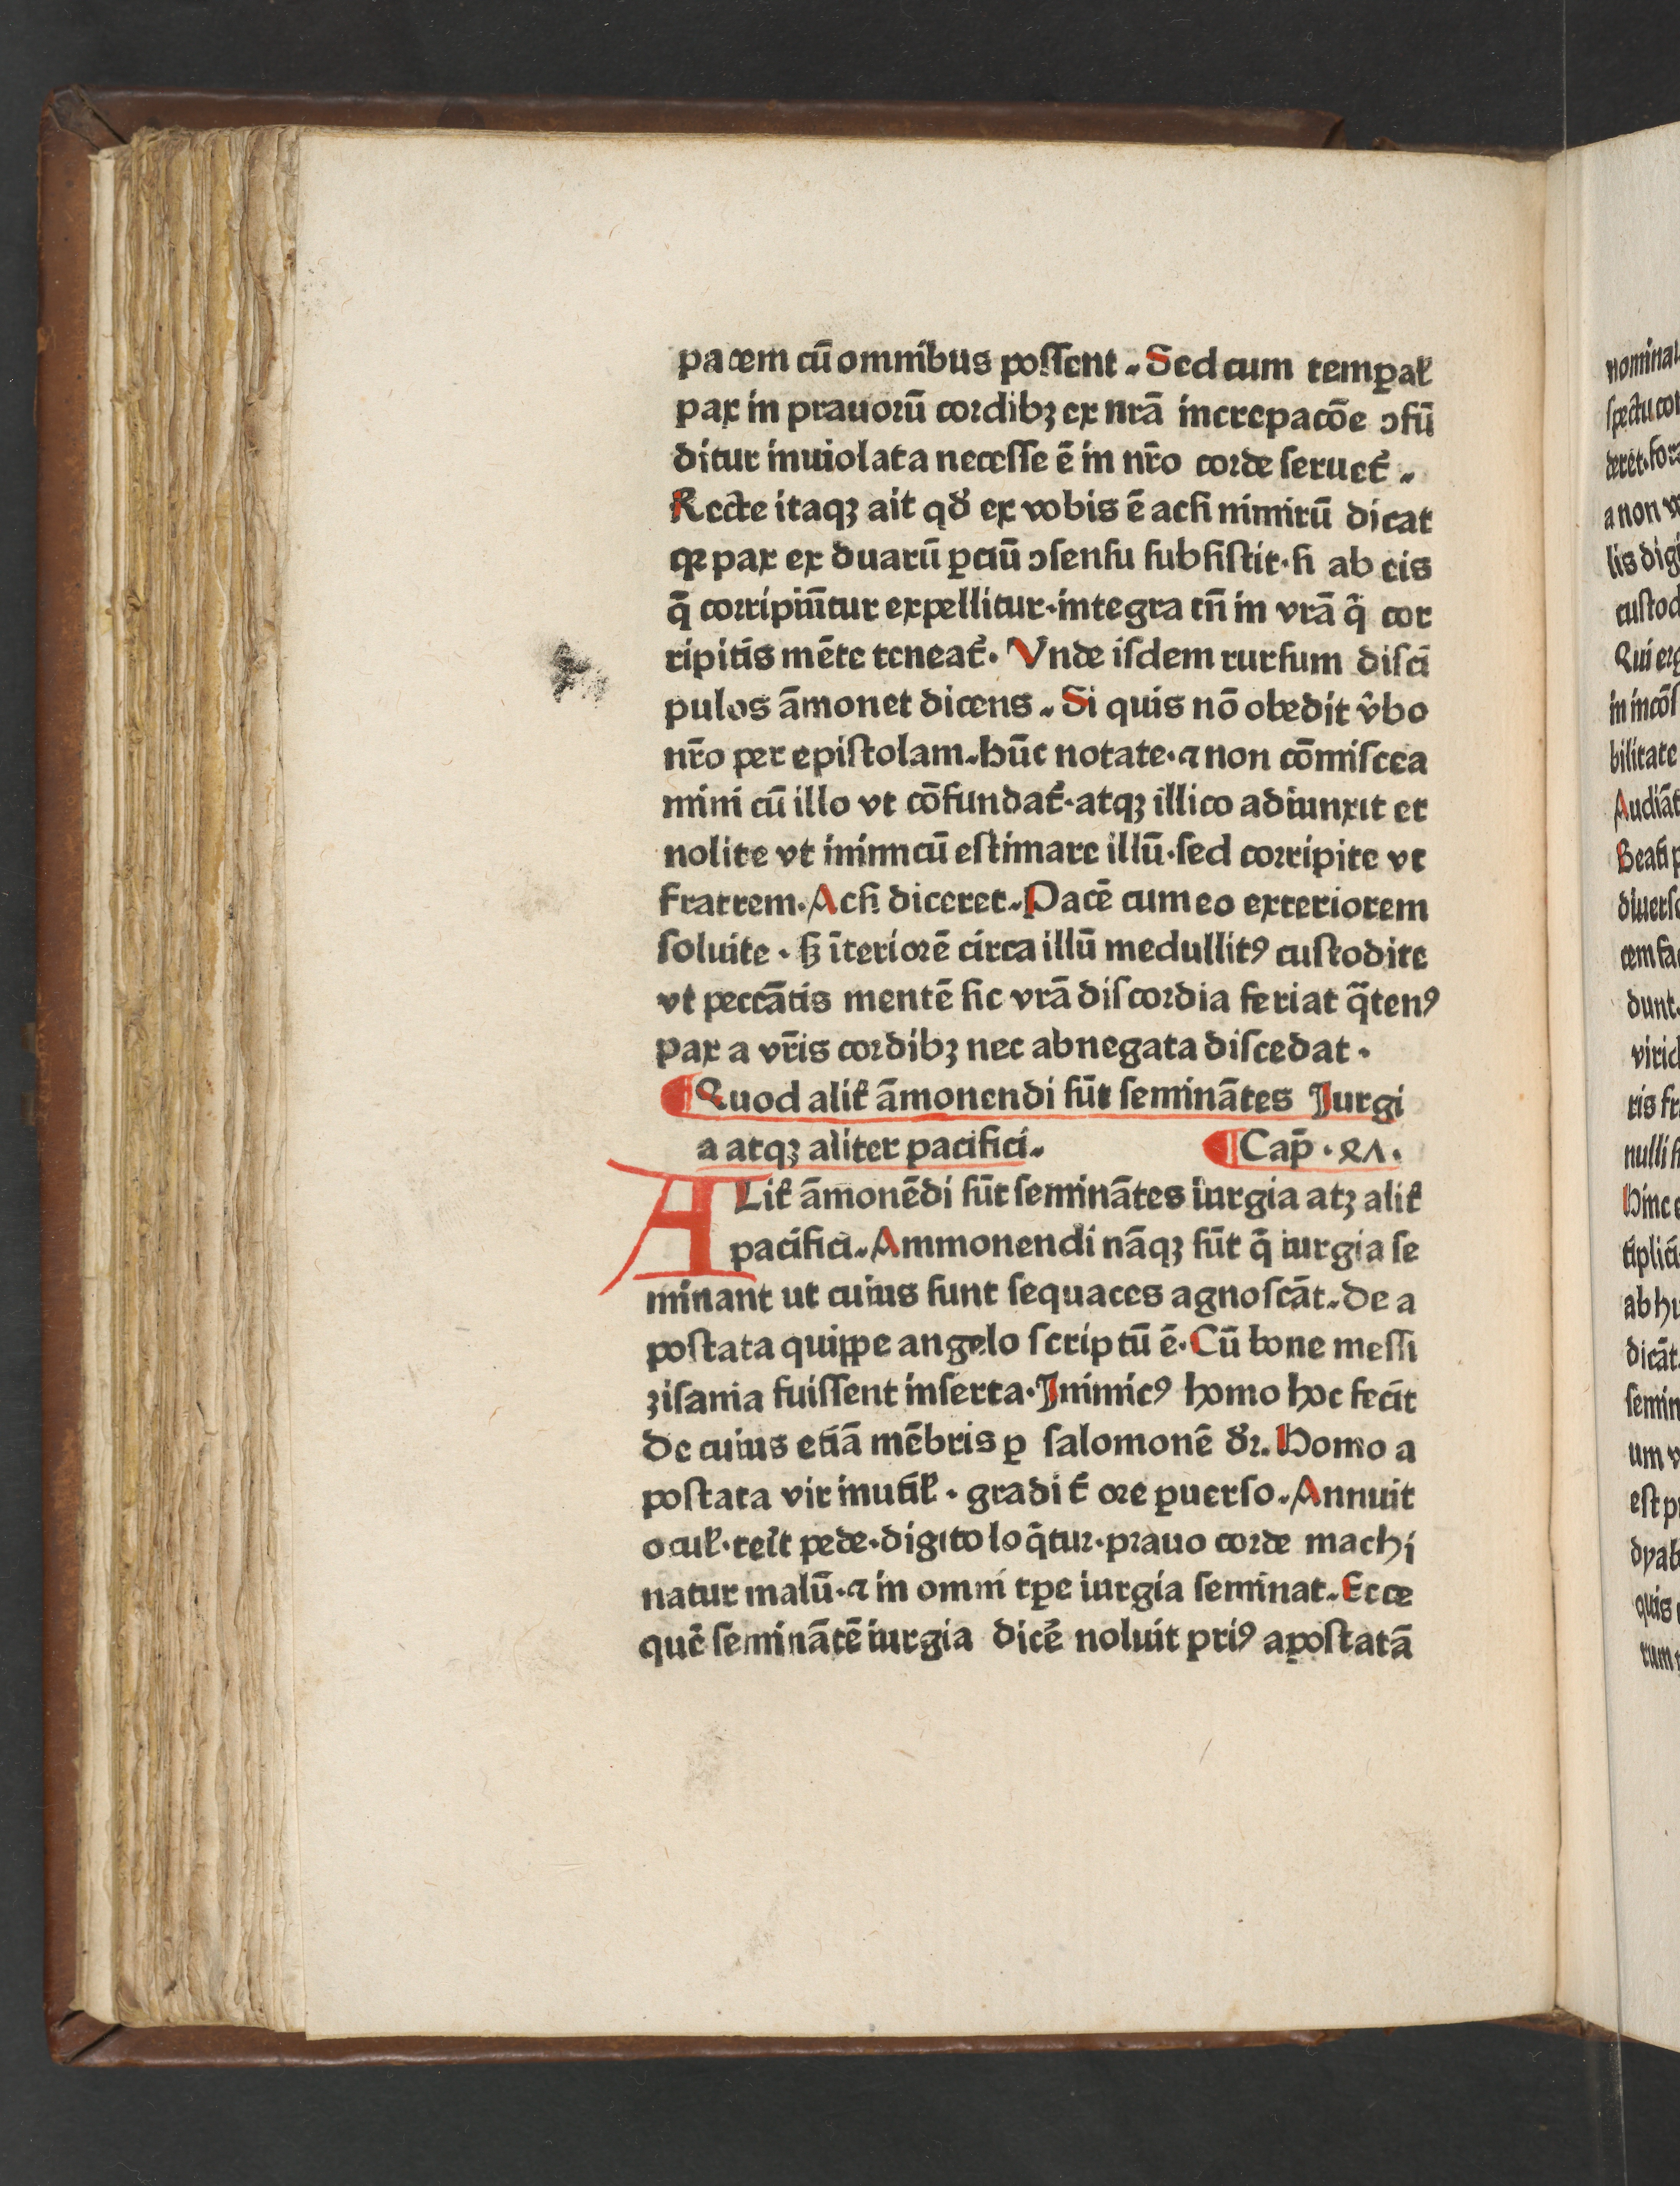 pacem cū omnibus poſſent. Sed cum temꝑaƚ
pax in prauorū cordibꝫ ex nr̄a increpacōe ɔfū
ditur inuiolata neceſſe ē in nr̄o corde ſeruet᷑.
Recte itaqꝫ ait qđ ex vobis ē acſi nimirū dicat
qꝛ pax ex duarū ꝑciū ɔſenſu ſubſiſtit·ſi ab eis
q̄ corripiūtur expellitur·integra tn̄ in vr̄a q̄ cor
ripitis mēte teneat᷑. Vnde iſdem rurſum diſci
pulos āmonet dicens. Si quis nō obedit v̂bo
nr̄o per epiſtolam. hūc notate·⁊ non cōmiſcea
mini cū illo vt cōfundat᷑·atqꝫ illico adiunxit et
nolite vt inimicū eſtimare illū·ſed corripite vt
fratrem. Acſi diceret. Pacē cum eo exteriorem
ſoluite · ſꝫ īteriorē circa illū medullitꝰ cuſtodite
vt peccātis mentē ſic vr̄a diſcordia feriat q̄tenꝰ
pax a vr̄is cordibꝫ nec abnegata diſcedat ·
¶ Quod alit᷑ āmonendi ſūt ſeminātes Jurgi
a atqꝫ aliter pacifici. ¶ Cap̄ · ꝝʌ.
ALit᷑ āmonēdi ſūt ſeminātes iurgia atꝫ alit᷑
pacifici. Ammonendi nāqꝫ ſūt q̄ iurgia ſe
minant ut cuius ſunt ſequaces agnoſcāt. De a
poſtata quippe angelo ſcriptū ē. Cū bone meſſi
ziſania fuiſſent inſerta. Jnimicꝰ homo hoc fecit
De cuius etiā mēbris ꝑ ſalomonē dr̄. Homo a
poſtata vir inutiƚ · gradit᷑ ore ꝑuerſo. Annuit
ocuƚ·terit pede·digito loq̄tur·prauo corde machi
natur malū·⁊ in omni tꝑe iurgia ſeminat. Ecce
quē ſeminātē iurgia dicē̄ noluit priꝰ apoſtatā